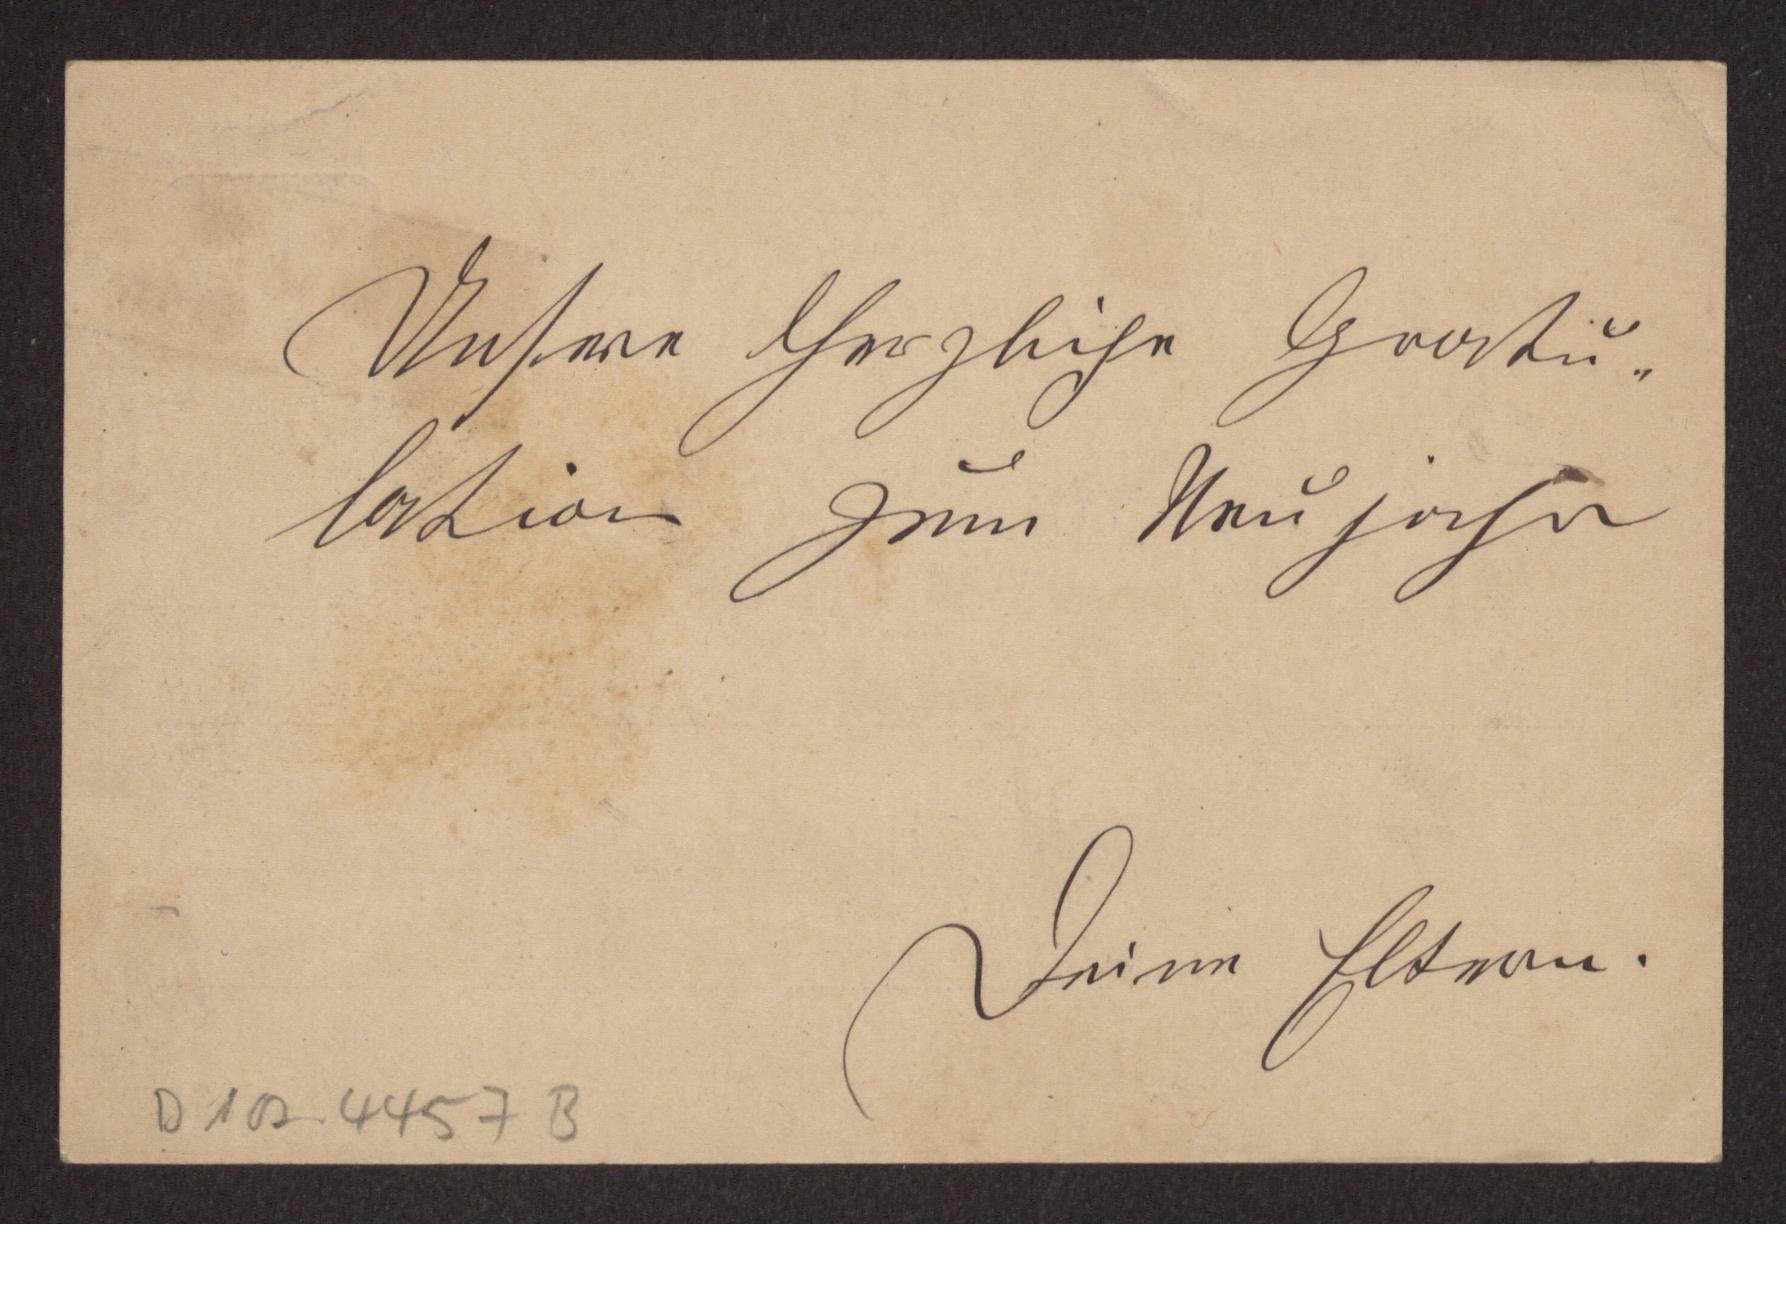 Unsere herzliche Gratu„
lation zum Neujahr
Deine Eltern.
D 102.4457 B